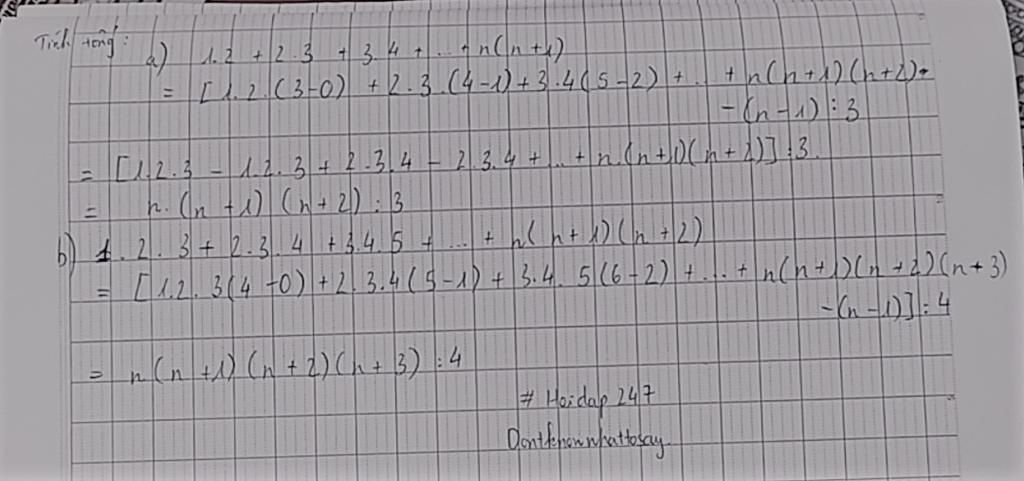 Tính tổng:
a) 1.2 + 2.3 + 3.4 + ... + n(n+1)
= [1.2.(3-0) + 2.3.(4-1)+3.4(5-2) + ... + n(n+1)(n+2)-
-(n-1) : 3
= [1.2.3 - 1.2.3 + 2.3.4 - 2.3.4 + ... + n.(n+1)(n+2)]:3.
= n.(n+1) (n+2) : 3
b) 1.2.3 + 2.3.4 + 3.4.5 + ... + n(n+1)(n+2)
= [1.2.3(4-0) + 2.3.4(5-1) + 3.4.5(6-2) + ... + n(n+1)(n+2)(n+3)
-(n-1)] : 4
= n(n+1)(n+2)(n+3) : 4
# Hoidap 247
Dontknowwhattosay.